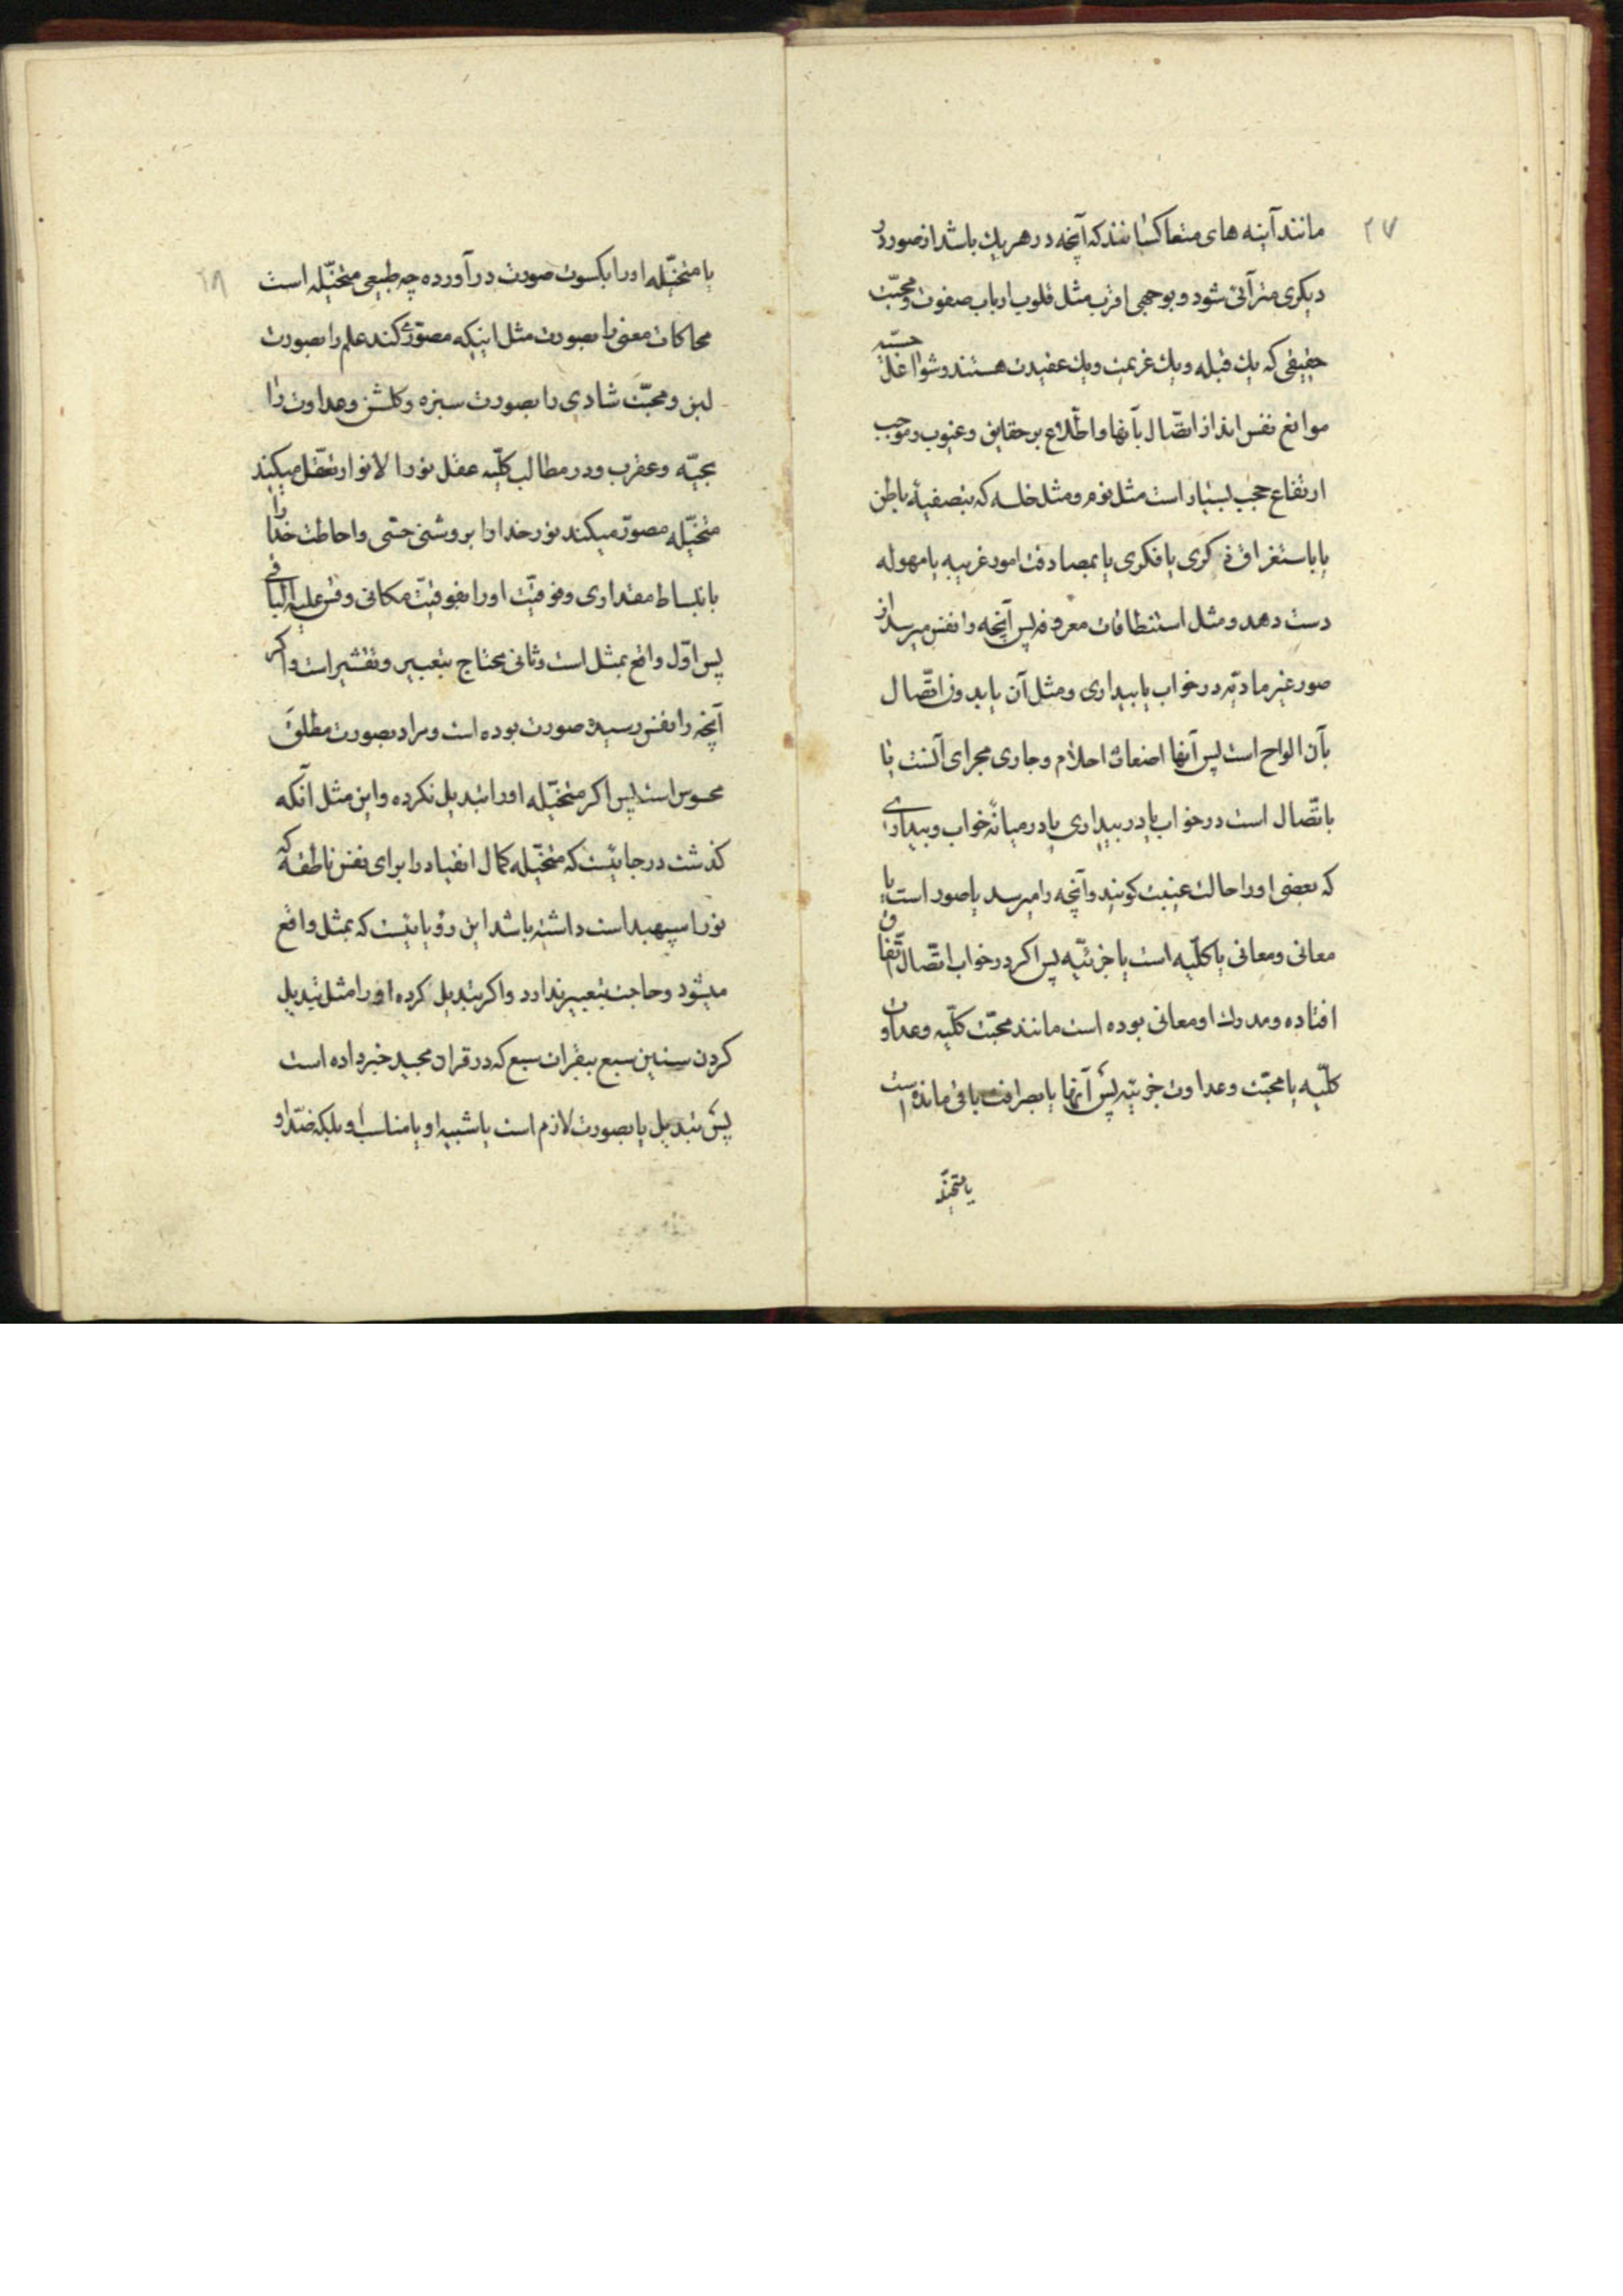 ۲۷
مانند آینه های متعاکساتند که آنچه در هر یك باشد از صور در
دیکری مترآئی شود و بوجهی اقرب مثل قلوب ارباب صفوت و محبّت
حقیقی که یك قبله و یك عزیمت و یك عقیدت هستند و شواغل حسیّه
موانع نفس اند از اتّصال بآنها و اطّلاع بر حقایق و غیوب و موجب
ارتفاع حجب بسیار است مثل نوم و مثل خلسه که بتصفیهٔ باطن
یا باستغراق ذکری یا فکری یا بمصادفت امور غریبه یا مهوله
دست دهد و مثل استنطاقات معروفه پس آنچه را نفس میرسد از
صور غیر مادیّه در خواب یا بیداری و مثل آن یا بدون اتّصال
بآن الواح است پس آنها اضغاث احلام و جاری مجرای آنست یا
باتّصال است در خواب یا در بیداری یا در میانهٔ خواب و بیداری
که بعضی او را حالت غیبت کویند و آنچه را میرسد یا صور است یا
معانی و معانی یا کلّیه است یا جزئیّه پس اکر در خواب اتّصال اتّفاق
افتاده و مدرك او معانی بوده است مانند محبّت کلّیه و عداوت
کلّیه یا محبّت و عداوت جزییّه پس آنها یا بصرافت باقی مانده است
یا متخیّله
۲۸
یا متخیّله او را بکسوت صورت در آورده چه طبیعی متخیّله است
محاکات معنی را بصورت مثل اینکه مصوّر کند علم را بصورت
لبن و محبّت شادی را بصورت سبزه و کلشن و عداوت را
بحیّه و عقرب و در مطالب کلّیه عقل نور الانوار تعقّل میکند
متخیّله مصوّر میکند نور خدا را بروشنی حسّی و احاطت خدا را
بانبساط مقداری و فوقیّت او را بفوقیّت مکانی و قس علیه الباقی
پس اوّل واقع بمثل است و ثانی محتاج بتعبیر و تفسیر است و اکر
آنچه را نفس رسیده صورت بوده است و مراد بصورت مطلق
محسوس است پس اکر متخیّله او را تبدیل نکرده و این مثل آنکه
کذشت در جاییست که متخیّله کمال انقیاد را برای نفس ناطقه که
نور اسپهبد است داشته باشد این رؤیاییست که بمثل واقع
میشود و حاجت بتعبیر ندارد و اکر تبدیل کرده او را مثل تبدیل
کردن سنین سبع ببقرات سبع که در قران مجید خبر داده است
پس تبدیل یا بصورت لازم است یا شبیه او یا مناسب او بلکه ضدّ او